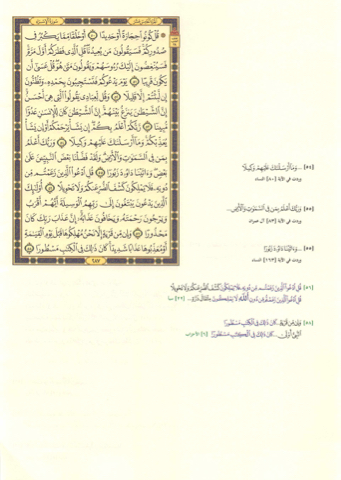 ۞ قُلۡ كُونُواْ حِجَارَةً أَوۡ حَدِيدًا ۝٥٠ أَوۡ خَلۡقٗا مِّمَّا يَكۡبُرُ فِي
صُدُورِكُمۡۚ فَسَيَقُولُونَ مَن يُعِيدُنَاۖ قُلِ ٱلَّذِي فَطَرَكُمۡ أَوَّلَ مَرَّةٖۚ
فَسَيُنۡغِضُونَ إِلَيۡكَ رُءُوسَهُمۡ وَيَقُولُونَ مَتَىٰ هُوَۖ قُلۡ عَسَىٰٓ أَن
يَكُونَ قَرِيبٗا ۝٥١ يَوۡمَ يَدۡعُوكُمۡ فَتَسۡتَجِيبُونَ بِحَمۡدِهِۦ وَتَظُنُّونَ
إِن لَّبِثۡتُمۡ إِلَّا قَلِيلٗا ۝٥٢ وَقُل لِّعِبَادِي يَقُولُواْ ٱلَّتِي هِيَ أَحۡسَنُۚ
إِنَّ ٱلشَّيۡطَٰنَ يَنزَغُ بَيۡنَهُمۡۚ إِنَّ ٱلشَّيۡطَٰنَ كَانَ لِلۡإِنسَٰنِ عَدُوّٗا
مُّبِينٗا ۝٥٣ رَّبُّكُمۡ أَعۡلَمُ بِكُمۡۖ إِن يَشَأۡ يَرۡحَمۡكُمۡ أَوۡ إِن يَشَأۡ
يُعَذِّبۡكُمۡۚ وَمَآ أَرۡسَلۡنَٰكَ عَلَيۡهِمۡ وَكِيلٗا ۝٥٤ وَرَبُّكَ أَعۡلَمُ
بِمَن فِي ٱلسَّمَٰوَٰتِ وَٱلۡأَرۡضِۗ وَلَقَدۡ فَضَّلۡنَا بَعۡضَ ٱلنَّبِيِّـۧنَ عَلَىٰ
بَعۡضٖۖ وَءَاتَيۡنَا دَاوُۥدَ زَبُورٗا ۝٥٥ قُلِ ٱدۡعُواْ ٱلَّذِينَ زَعَمۡتُم مِّن
دُونِهِۦ فَلَا يَمۡلِكُونَ كَشۡفَ ٱلضُّرِّ عَنكُمۡ وَلَا تَحۡوِيلًا ۝٥٦ أُوْلَٰٓئِكَ
ٱلَّذِينَ يَدۡعُونَ يَبۡتَغُونَ إِلَىٰ رَبِّهِمُ ٱلۡوَسِيلَةَ أَيُّهُمۡ أَقۡرَبُ
وَيَرۡجُونَ رَحۡمَتَهُۥ وَيَخَافُونَ عَذَابَهُۥٓۚ إِنَّ عَذَابَ رَبِّكَ كَانَ
مَحۡذُورٗا ۝٥٧ وَإِن مِّن قَرۡيَةٍ إِلَّا نَحۡنُ مُهۡلِكُوهَا قَبۡلَ يَوۡمِ ٱلۡقِيَٰمَةِ
أَوۡ مُعَذِّبُوهَا عَذَابٗا شَدِيدٗاۚ كَانَ ذَٰلِكَ فِي ٱلۡكِتَٰبِ مَسۡطُورٗا ۝٥٨
٢٨٧
[٥٤] ...وَمَآ أَرۡسَلۡنَٰكَ عَلَيۡهِمۡ وَكِيلٗا
وردت في الآية [٨٠] النساء
[٥٥] وَرَبُّكَ أَعۡلَمُ بِمَن فِي ٱلسَّمَٰوَٰتِ وَٱلۡأَرۡضِ...
وردت في الآية [٨٣] آل عمران
[٥٥] ...وَءَاتَيۡنَا دَاوُۥدَ زَبُورٗا
وردت في الآية [١٦٣] النساء
[٥٦] قُلِ ٱدۡعُواْ ٱلَّذِينَ زَعَمۡتُم مِّن دُونِهِۦ فَلَا يَمۡلِكُونَ كَشۡفَ ٱلضُّرِّ عَنكُمۡ وَلَا تَحۡوِيلًا
قُلِ ٱدۡعُواْ ٱلَّذِينَ زَعَمۡتُم مِّن دُونِ ٱللَّهِ لَا يَمۡلِكُونَ مِثۡقَالَ ذَرَّةٖ... [٢٢] سبأ
[٥٨] وَإِن مِّن قَرۡيَةٍ...كَانَ ذَٰلِكَ فِي ٱلۡكِتَٰبِ مَسۡطُورٗا
ٱلنَّبِيُّ أَوۡلَىٰ...كَانَ ذَٰلِكَ فِي ٱلۡكِتَٰبِ مَسۡطُورٗا [٦] الأحزاب